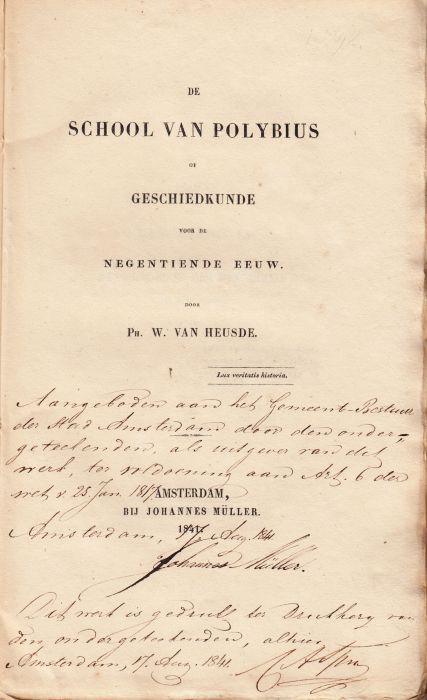 DE
SCHOOL VAN POLYBIUS
OF
GESCHIEDKUNDE
VOOR DE
NEGENTIENDE EEUW.
DOOR
PH. W. VAN HEUSDE.
Lux veritatis historia.
Aangeboden aan het Gemeent-Bestuur
der Stad Amsterdam door den onder-
geteekenden, als uitgever van dit
werk, ter voldoening aan Art. 6 der
wet v. 25 Jan. 1817.
AMSTERDAM,
BIJ JOHANNES MÜLLER.
1841.
Amsterdam, 17 Aug. 1841
Johannes Müller.
Dit werk is gedrukt ter Drukkery van
den ondergeteekenden, alhier
Amsterdam, 17 Aug. 1841.